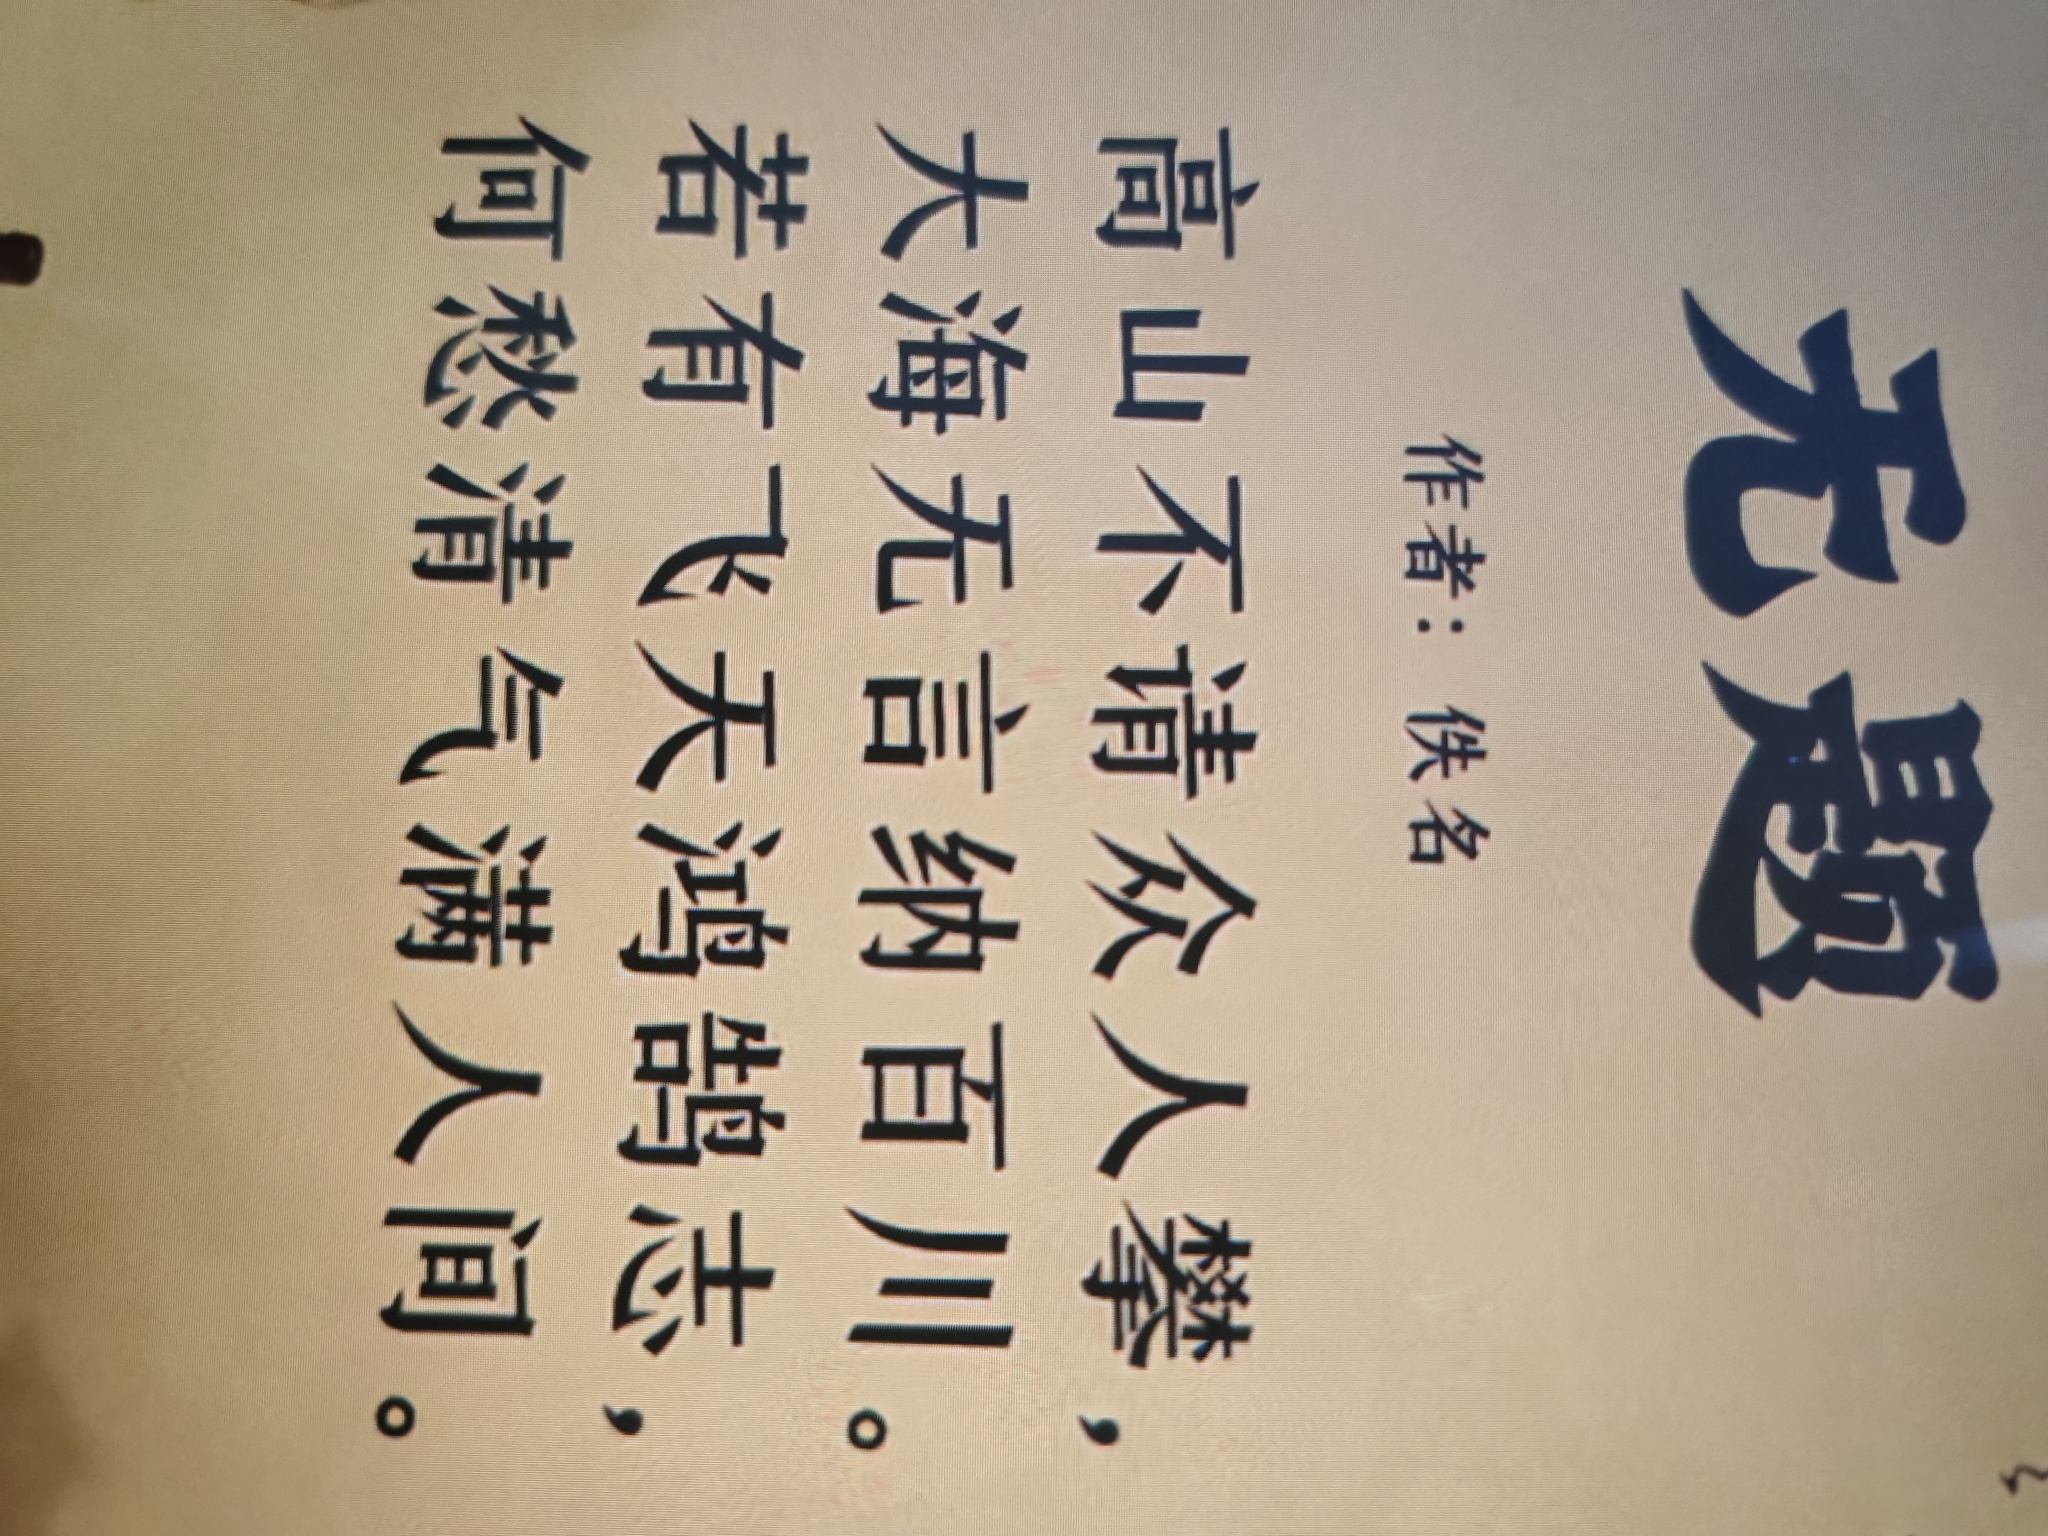 无题
作者：佚名
高山不请众人攀，
大海无言纳百川。
若有飞天鸿鹄志，
何愁清气满人间。